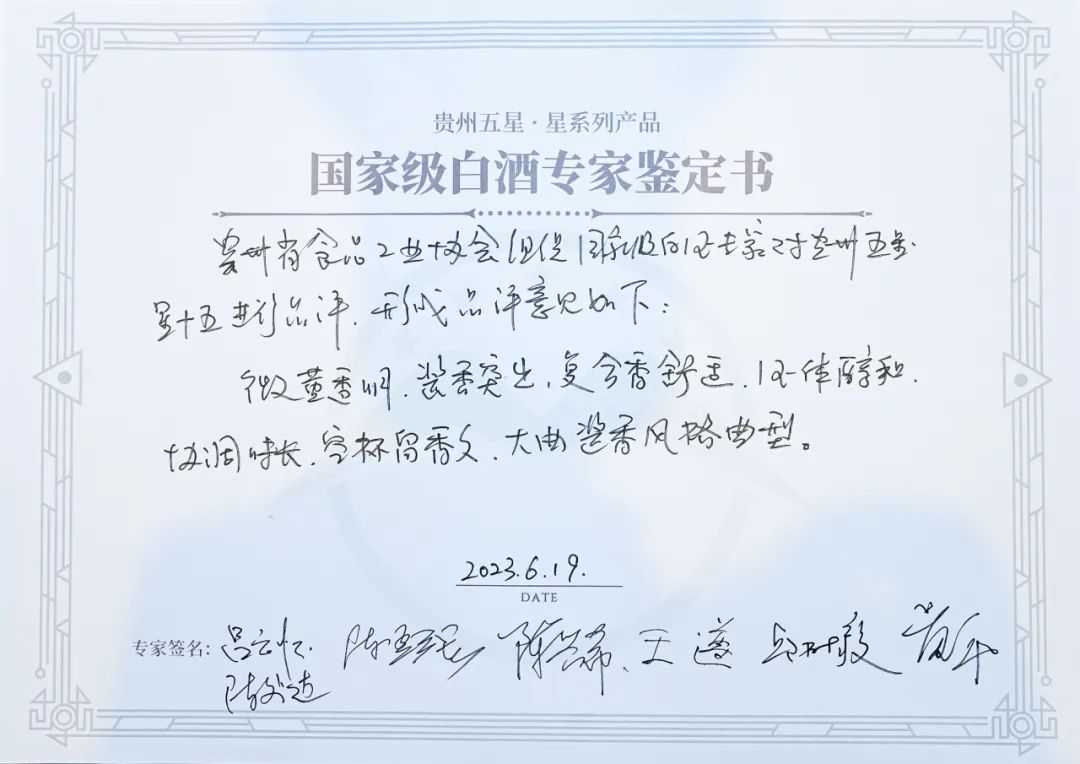 贵州五星·星系列产品
国家级白酒专家鉴定书
贵州省食品工业协会组织国家级白酒专家对贵州五星·
星十五进行品评,形成品评意见如下:
微黄透明,酱香突出,复合香舒适,酒体醇和,
协调味长,空杯留香久,大曲酱香风格典型。
2023.6.19.
DATE
专家签名: 吕云怀 王遵